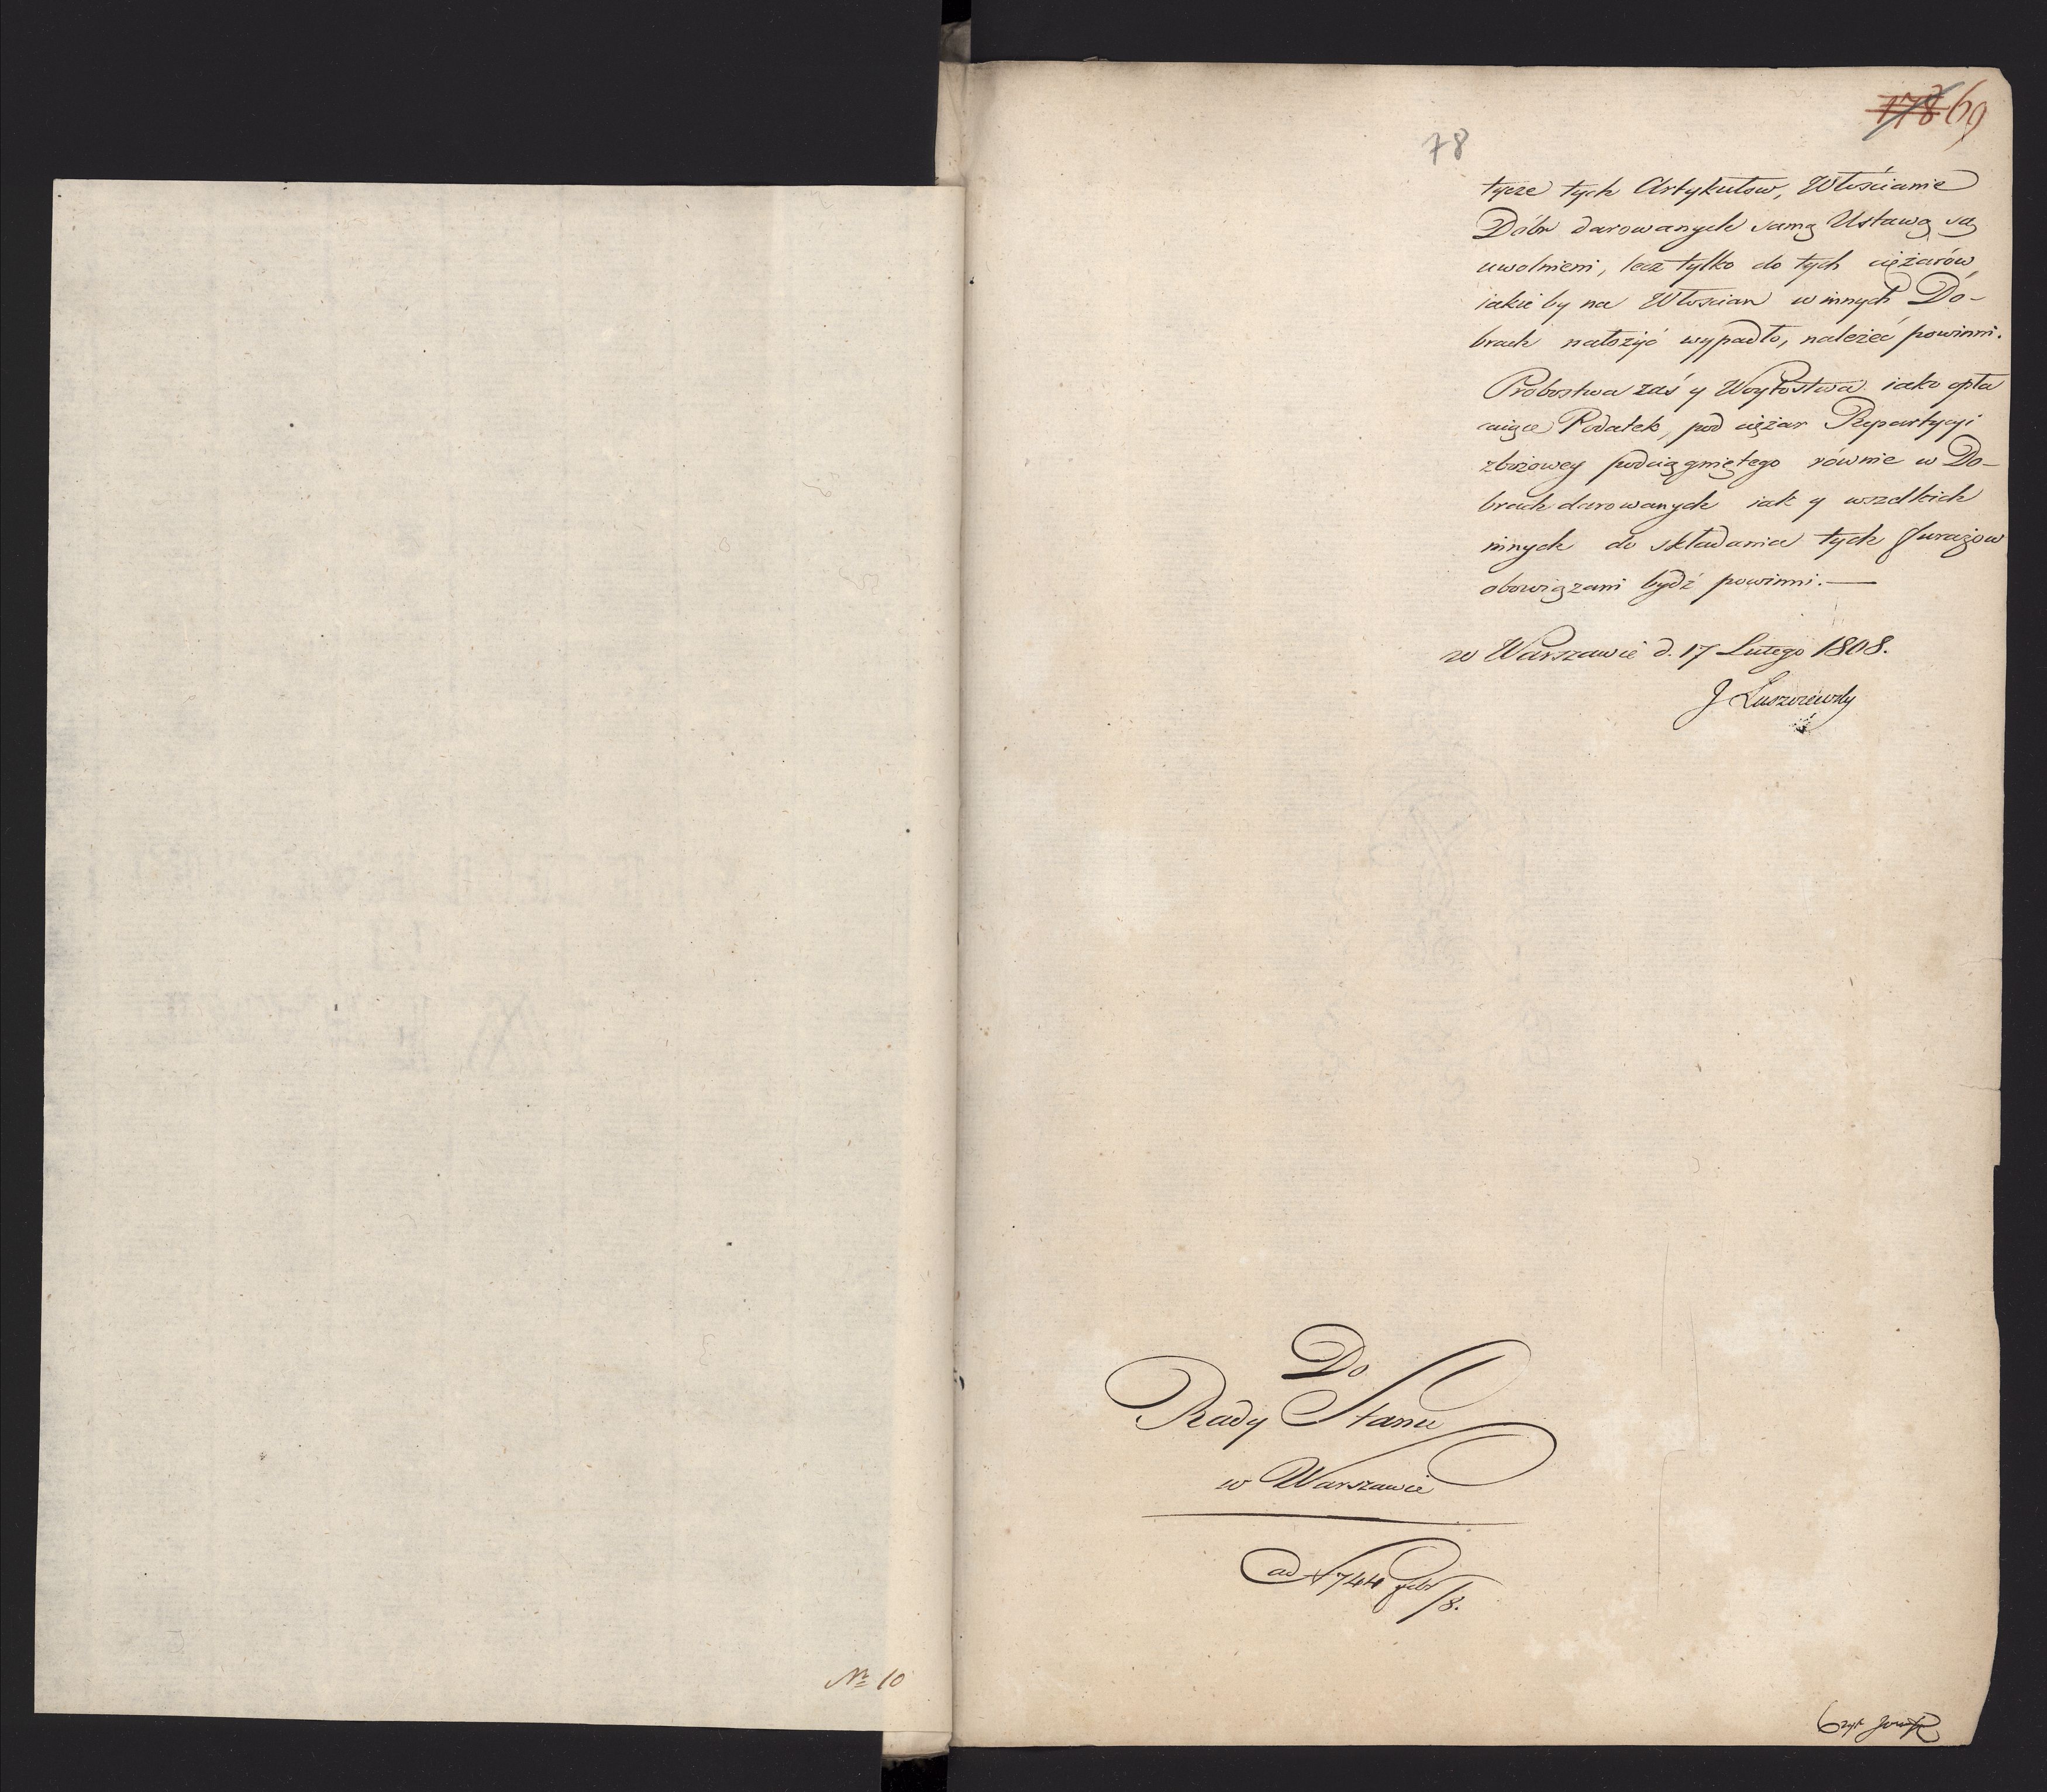 178 69
78
tycze tych Artykułow, Włościanie
Dóbr darowanych samą Ustawą są
uwolnieni, lecz tylko do tych ciężarów
iakie by na Włoscian w innych Dó-
brach nałożyć wypadło, należeć powinni.
Probostwa zaś y Woytostwa iako opła
caiące Podatek, pod ciężar Repartycyi
zbożowey podciągniętego równie w Do-
brach darowanych iak y wszelkich
innych do składania tych furażow
obowiązani bydź powinni. —
w Warszawie d. 17 Lutego 1808.
J Łuszczewsky
Do
Rady Stanu
w Warszawie
ad N 744 febr /8.
№ 10